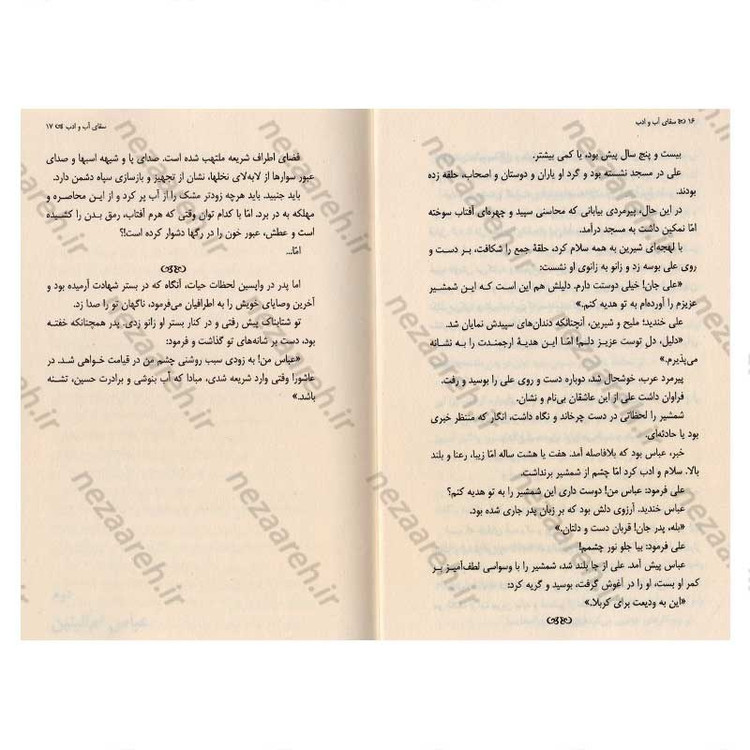 ۱۶ سقای آب و ادب
بیست و پنج سال پیش بود، یا کمی بیشتر.
علی در مسجد نشسته بود و گرد او یاران و دوستان و اصحاب، حلقه زده
بودند.
در این حال، پیرمردی بیابانی که محاسنی سپید و چهره‌ای آفتاب سوخته
امّا نمکین داشت به مسجد درآمد.
با لهجه‌ای شیرین به همه سلام کرد، حلقهٔ جمع را شکافت، بر دست و
روی علی بوسه زد و زانو به زانوی او نشست:
«علی جان! خیلی دوستت دارم. دلیلش هم این است کـه ایـن شمشیر
عزیزم را آورده‌ام به تو هدیه کنم.»
علی خندید؛ ملیح و شیرین، آنچنانکه دندان‌های سپیدش نمایان شد.
«دلیل، دل توست عزیز دلم! امّا این هدیهٔ ارجمندت را بـه نشـانه
می‌پذیرم.»
پیرمرد عرب، خوشحال شد، دوباره دست و روی علی را بوسید و رفت.
فراوان داشت علی از این عاشقان بی‌نام و نشان.
شمشیر را لحظاتی در دست چرخاند و نگاه داشت، انگار که منتظر خبری
بود یا حادثه‌ای.
خبر، عباس بود که بلافاصله آمد. هفت یا هشت ساله امّا زیبا، رعنا و بلند
بالا. سلام و ادب کرد امّا چشم از شمشیر برنداشت.
علی فرمود: عباس من! دوست داری این شمشیر را به تو هدیه کنم؟
عباس خندید. آرزوی دلش بود که بر زبان پدر جاری شده بود.
«بله، پدر جان! قربان دست و دلتان.»
علی فرمود: بیا جلو نور چشمم!
عباس پیش آمد. علی از جا بلند شد، شمشیر را با وسواسی لطف‌آمیـز بـر
کمر او بست، او را در آغوش گرفت، بوسید و گریه کرد:
«این به ودیعت برای کربلا.»
سقای آب و ادب ۱۷
فضای اطراف شریعه ملتهب شده است. صدای پا و شیهه اسبها و صدای
عبور سوارها از لابه‌لای نخلها، نشان از تجهیز و بازسازی سپاه دشمن دارد.
باید جنبید. باید هرچه زودتر مشک را از آب پر کرد و از این محاصـره و
مهلکه به در برد. امّا با کدام توان وقتی که هرم آفتاب، رمق بدن را کشـیده
است و عطش، عبور خون را در رگها دشوار کرده است!؟
امّا...
اما پدر در واپسین لحظات حیات، آنگاه که در بستر شهادت آرمیده بود و
آخرین وصایای خویش را به اطرافیان می‌فرمود، ناگهان تو را صدا زد.
تو شتابناک پیش رفتی و در کنار بستر او زانو زدی. پدر همچنانکه خفتـه
بود، دست بر شانه‌های تو گذاشت و فرمود:
«عباس من! به زودی سبب روشنی چشم من در قیامت خواهی شـد. در
عاشورا وقتی وارد شریعه شدی، مبادا که آب بنوشی و برادرت حسین، تشنه
باشد.»
nezaareh.ir